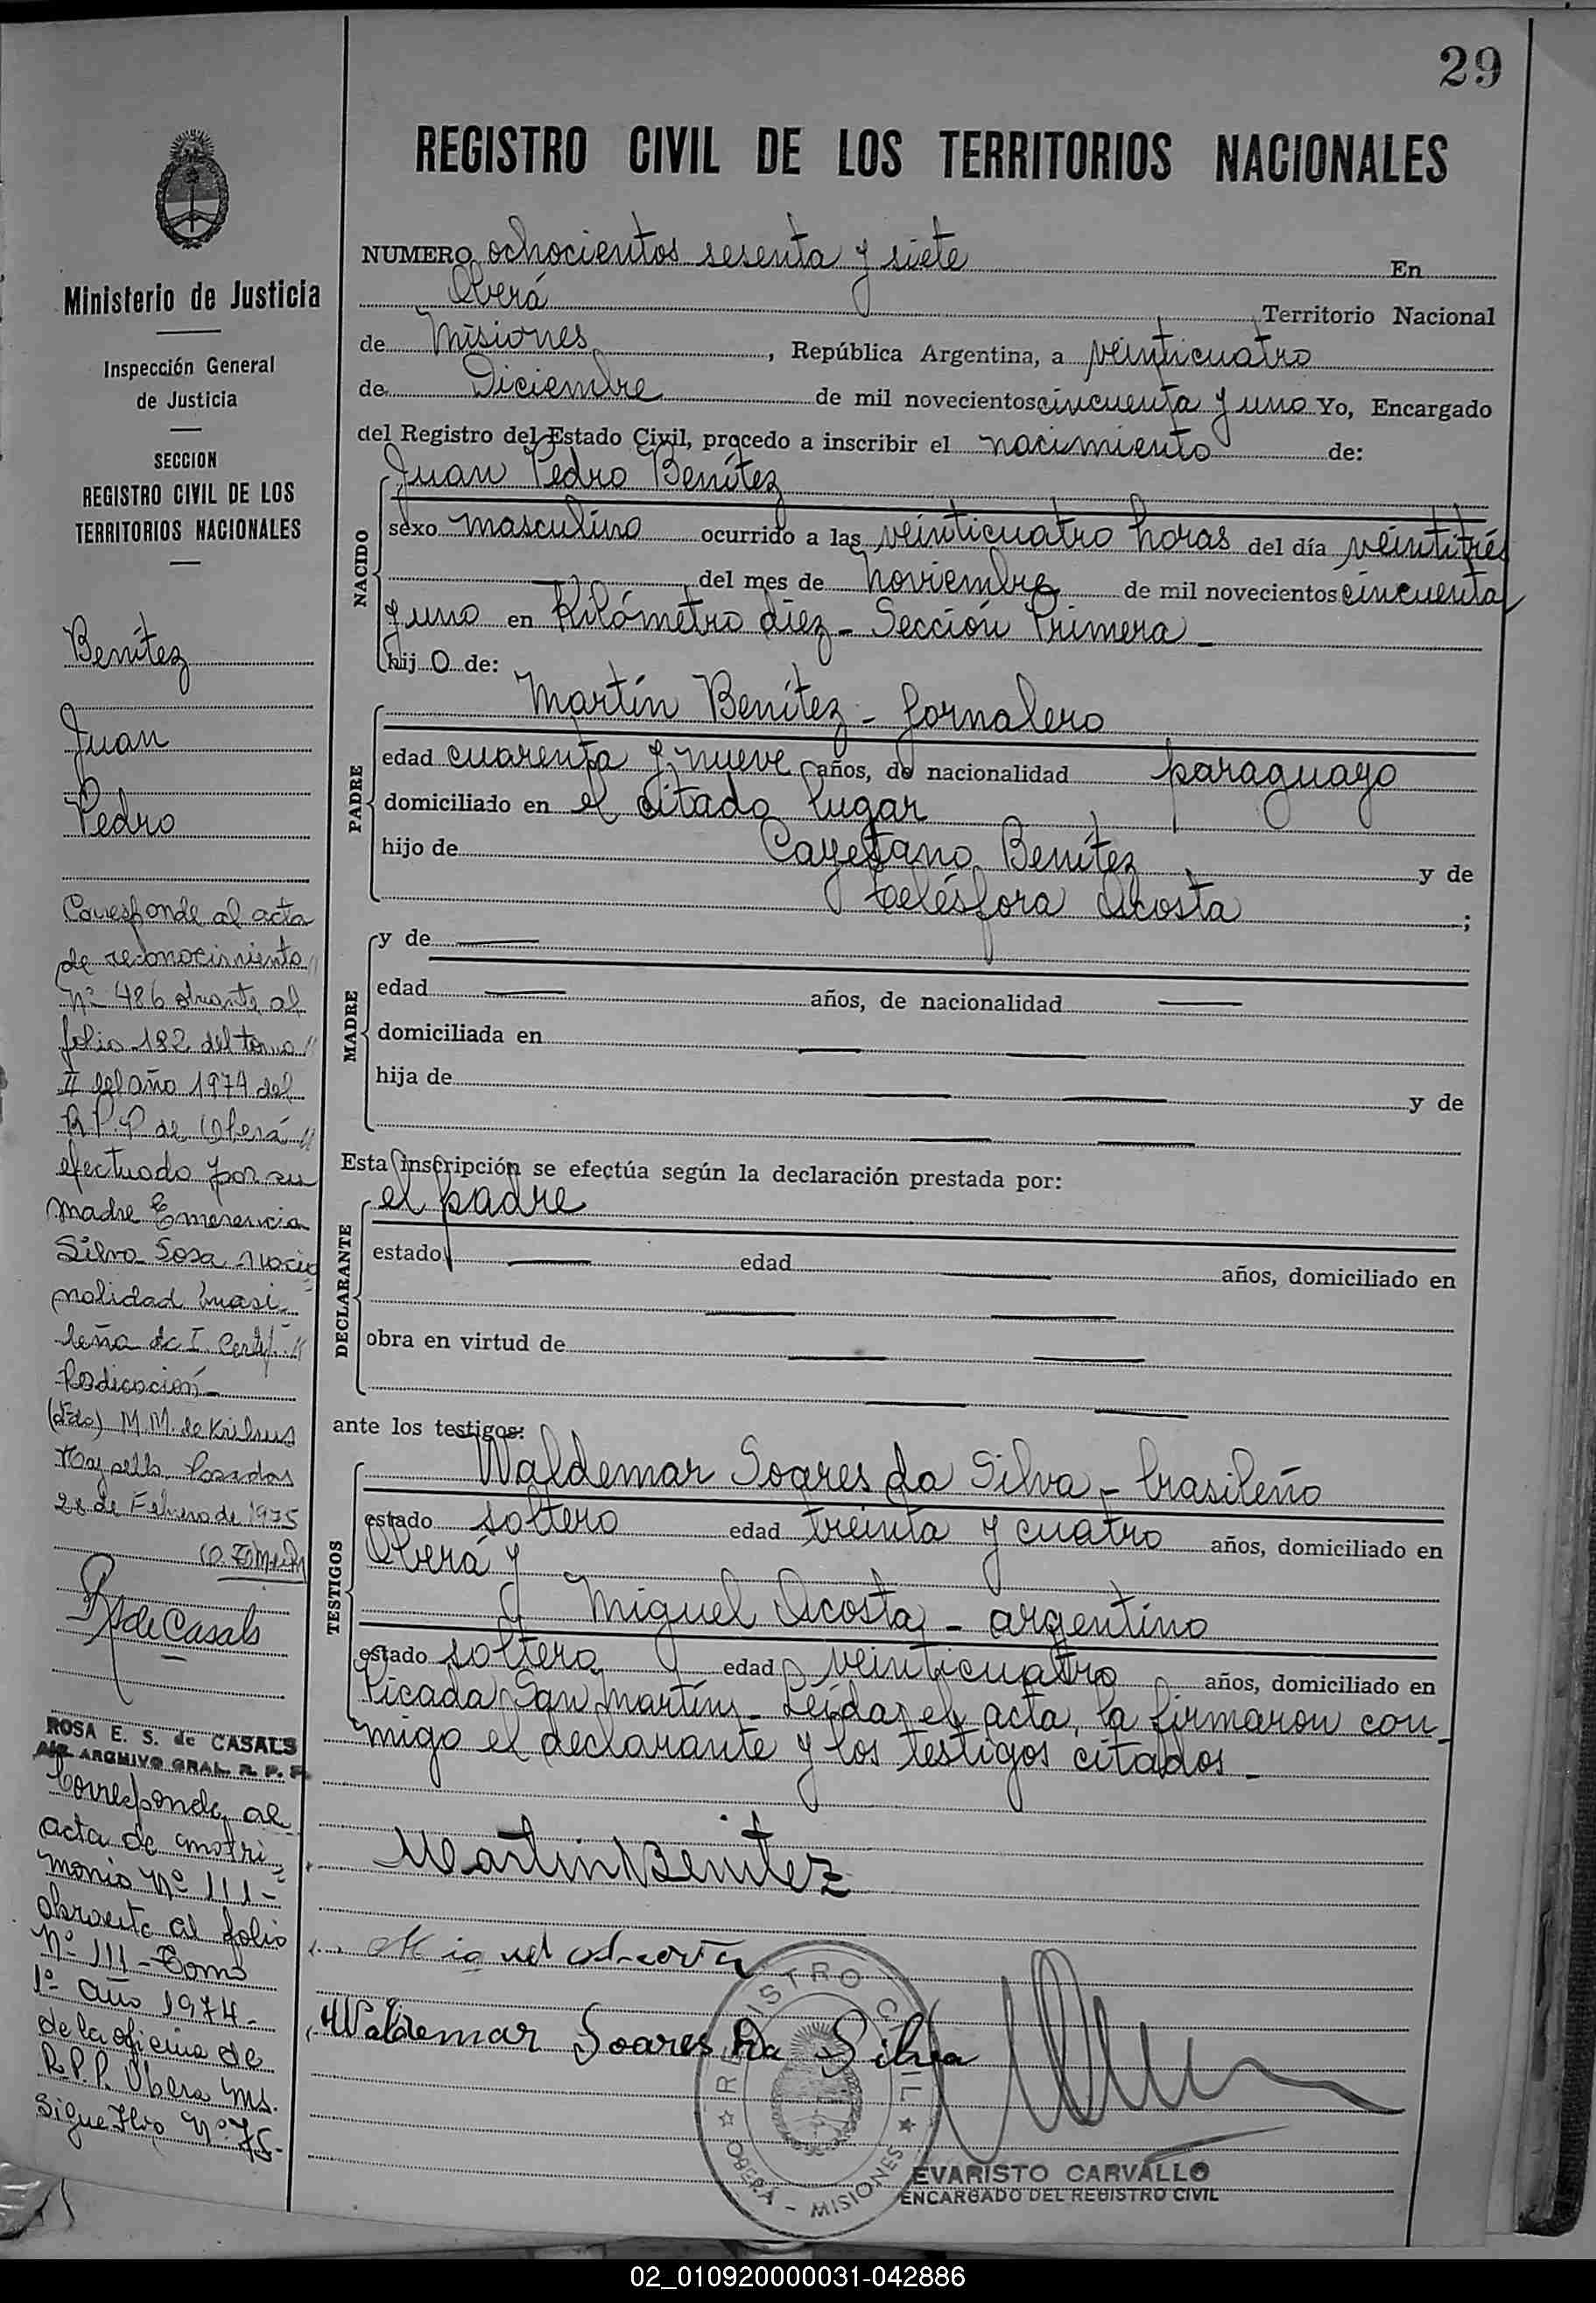 29
REGISTRO CIVIL DE LOS TERRITORIOS NACIONALES
Ministerio de Justicia
Inspección General
de Justicia
SECCION
REGISTRO CIVIL DE LOS
TERRITORIOS NACIONALES
Benítez
Juan
Pedro
Corresponde al acta
de reconocimiento
Nº 486 obrante al
folio 182 del tomo
II del año 1974 del
R.P.P de Oberá
efectuado por su
madre Emerencia
Silva Sosa nacio
nalidad brasi-
leña dc I. Certif.
Radicación
(fdo) M.M. de
Posadas
28 de Febrero de 1975
R S de Casals
ROSA E. S. de CASALS
ARCHIVO GRAL. R. P. P.
Corresponde al
acta de matri-
monio Nº 111-
obrante al folio
Nº 111 - Tomo
1º año 1974-
de la oficina de
R.P.P. Oberá Ms.
Sigue Flio Nº 75-
NUMERO ochocientos sesenta y siete En
Oberá Territorio Nacional
de Misiones, República Argentina, a veinticuatro
de Diciembre de mil novecientos cincuenta y uno Yo, Encargado
del Registro del Estado Civil, procedo a inscribir el nacimiento de:
NACIDO
Juan Pedro Benítez
sexo masculino ocurrido a las veinticuatro horas del día veintitrés
del mes de noviembre de mil novecientos cincuenta
y uno en Kilómetro diez - Sección Primera -
hij o de:
PADRE
Martín Benítez - Jornalero
edad cuarenta y nueve años, de nacionalidad paraguayo
domiciliado en el citado lugar
hijo de Cayetano Benítez y de
Telésfora Acosta ;
MADRE
y de —
edad — años, de nacionalidad —
domiciliada en — —
hija de — — y de
— —
Esta inscripción se efectúa según la declaración prestada por:
DECLARANTE
el padre
estado — edad — años, domiciliado en
— —
obra en virtud de — —
— —
ante los testigos:
TESTIGOS
Waldemar Soares da Silva - brasileño
estado soltero edad treinta y cuatro años, domiciliado en
Oberá y
Miguel Acosta - argentino
estado soltero edad veinticuatro años, domiciliado en
Picada San Martín - Leída el acta, la firmaron con-
migo el declarante y los testigos citados -
Martin Benitez
Miguel Acosta
Waldemar Soares Da Silva
REGISTRO CIVIL
OBERÁ - MISIONES
EVARISTO CARVALLO
ENCARGADO DEL REGISTRO CIVIL
02_010920000031-042886